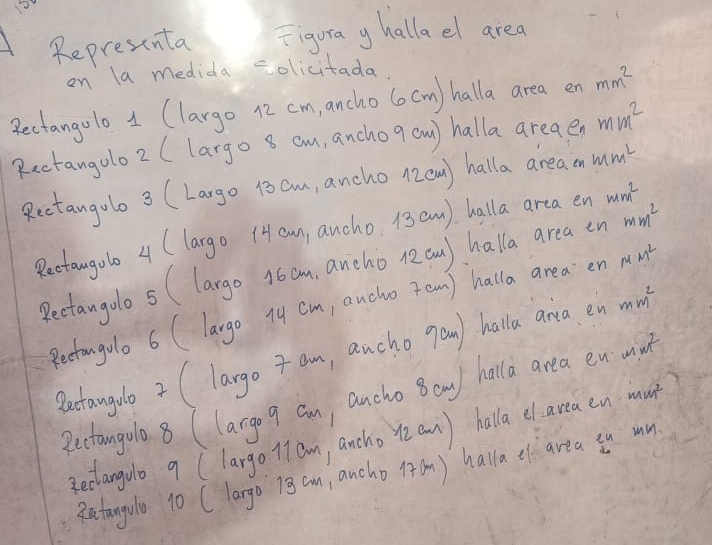 Representa Figura y halla el area
en la medida solicitada.
Rectangulo 1 (largo 12 cm, ancho 6 cm) halla area en mm²
Rectangulo 2 (largo 8 cm, ancho 9 cm) halla area en mm²
Rectangulo 3 (Largo 13 cm, ancho 12 cm) halla área en mm²
Rectangulo 4 (largo 14 cm, ancho 13 cm) halla area en mm²
Rectangulo 5 (largo 16 cm, ancho 12 cm) halla area en mm²
Rectangulo 6 (largo 14 cm, ancho 7 cm) halla area en mm²
Rectangulo 7 (largo 7 cm, ancho 9 cm) halla area en mm²
Rectangulo 8 (largo 9 cm, ancho 8 cm) halla area en mm²
Rectangulo 9 (largo 11 cm, ancho 12 cm) halla el area en mm²
Rectangulo 10 (largo 13 cm, ancho 17 cm) halla el area en mm